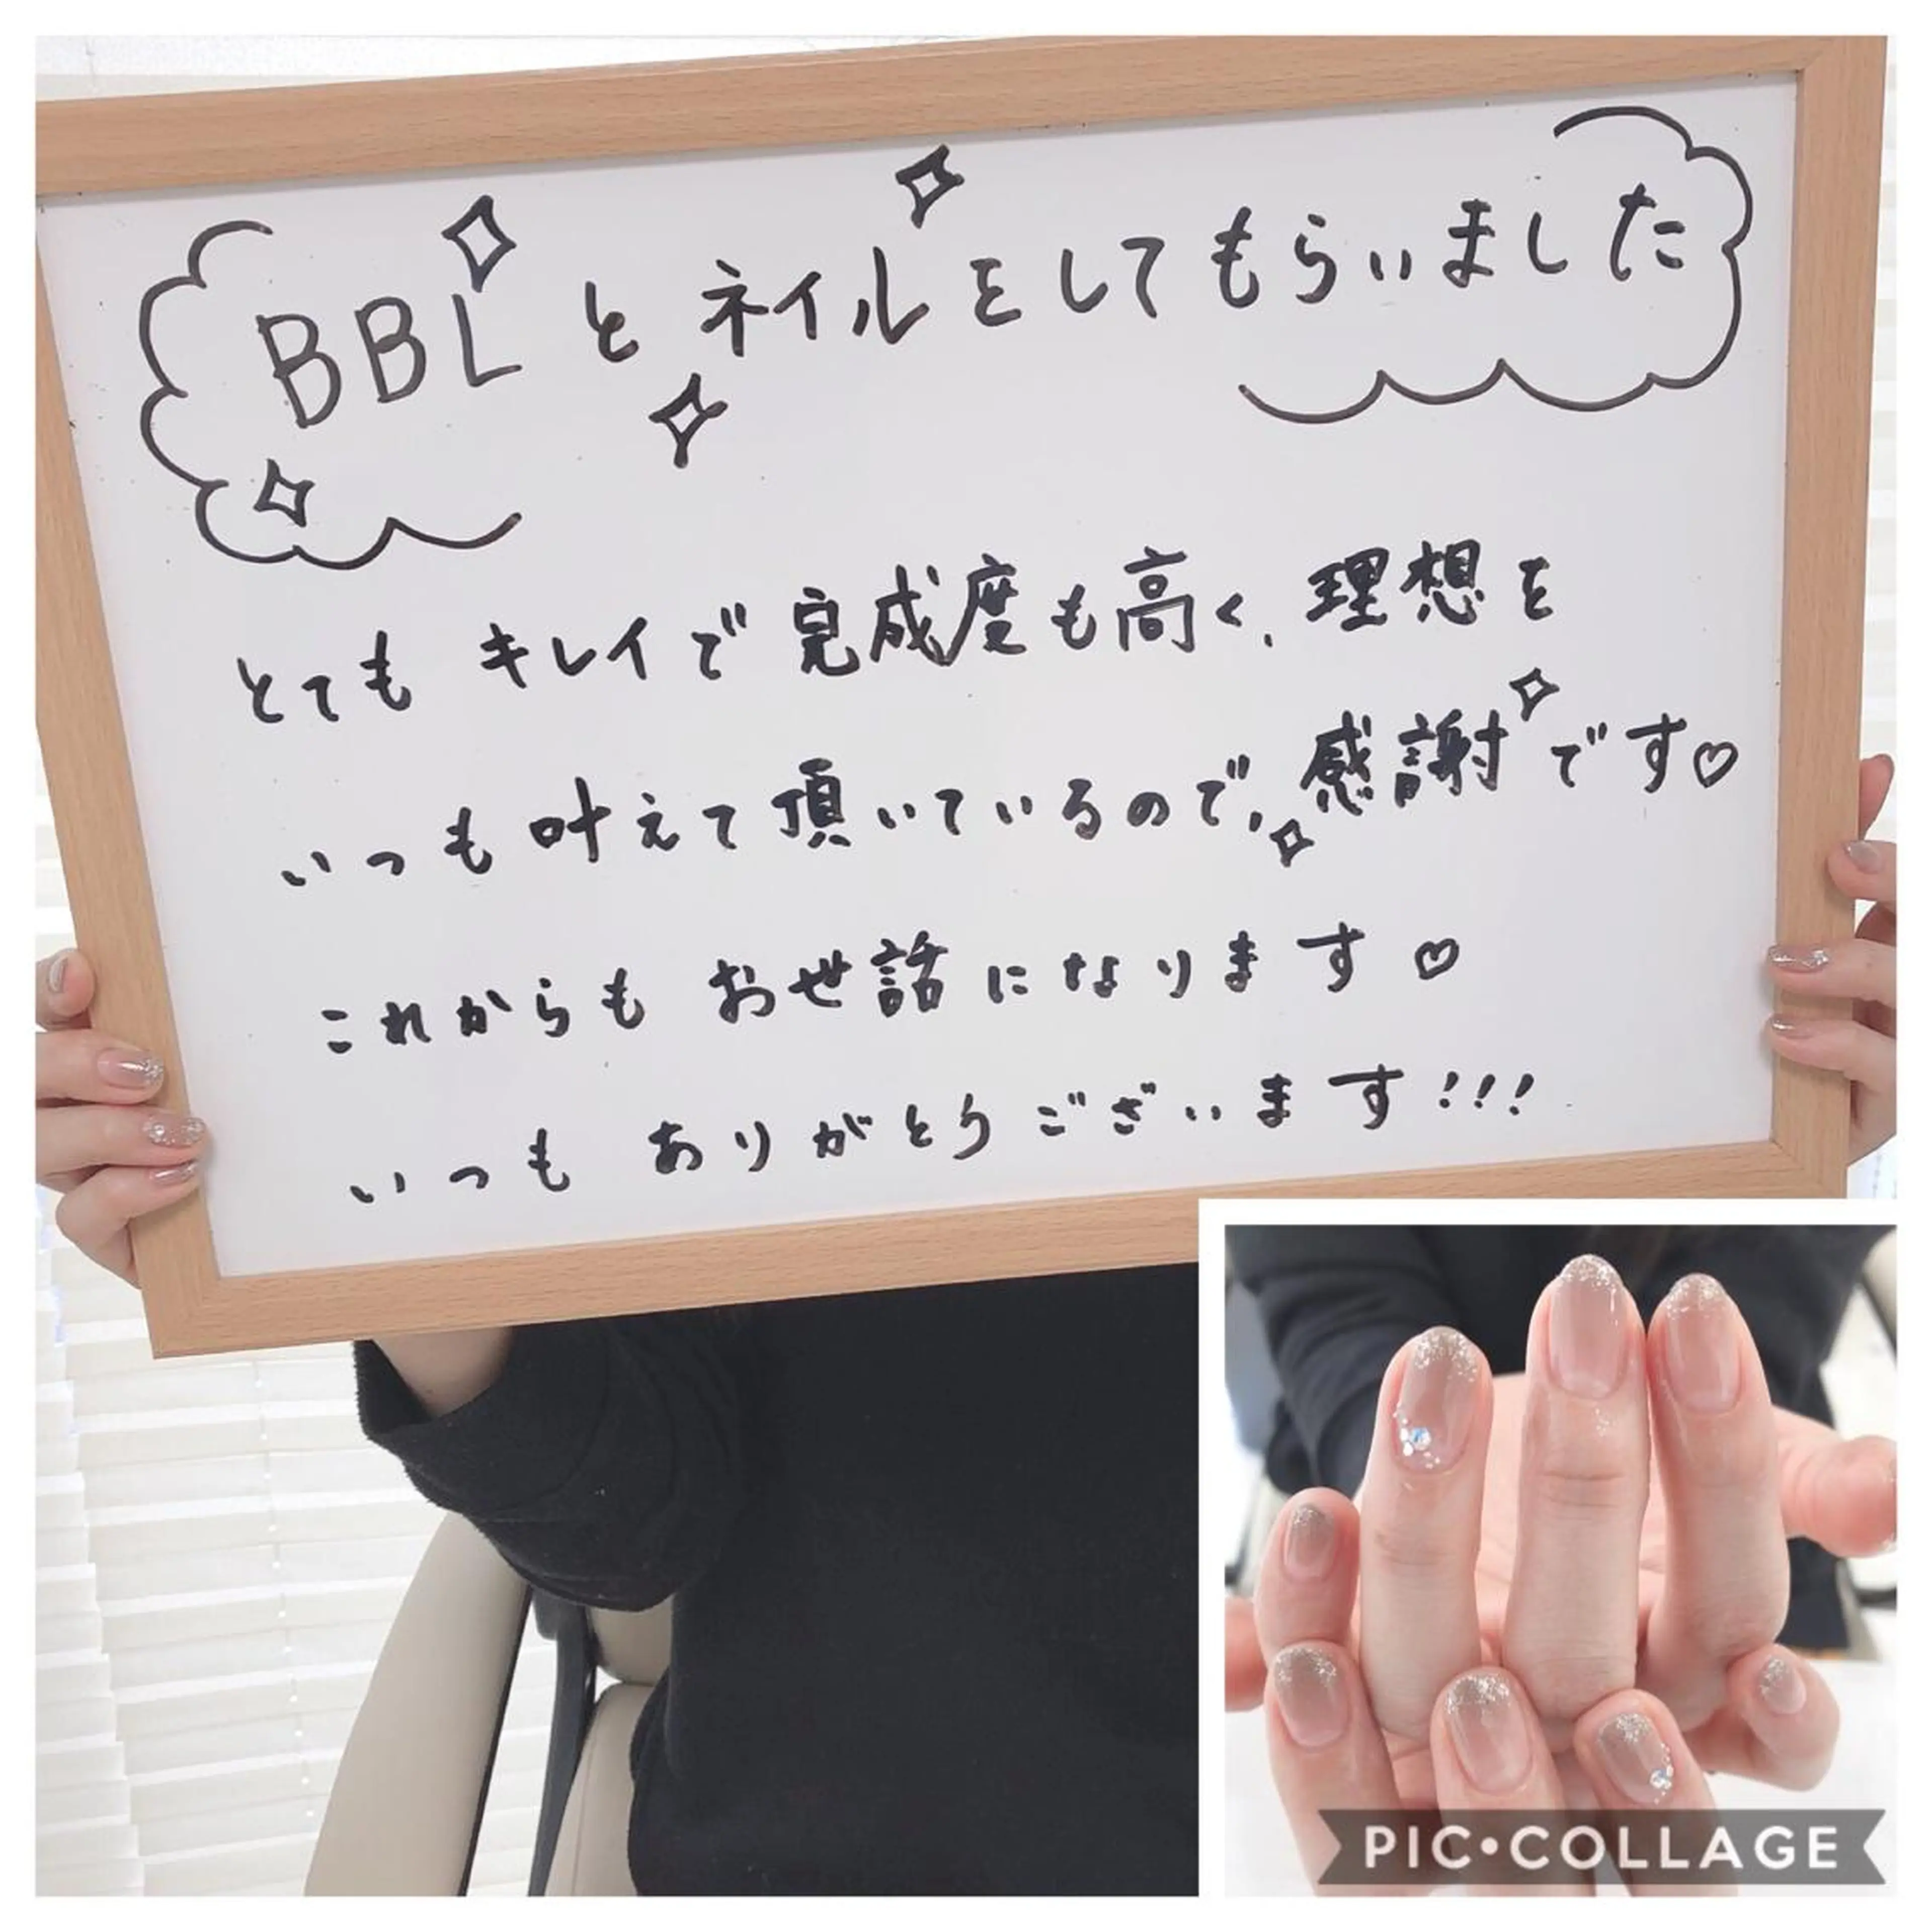 BBLとネイルをしてもらいました
とても キレイで完成度も高く、理想を
いつも叶えて頂いているので、感謝です♡
これからも お世話になります♡
いつも ありがとうございます!!!
PIC•COLLAGE